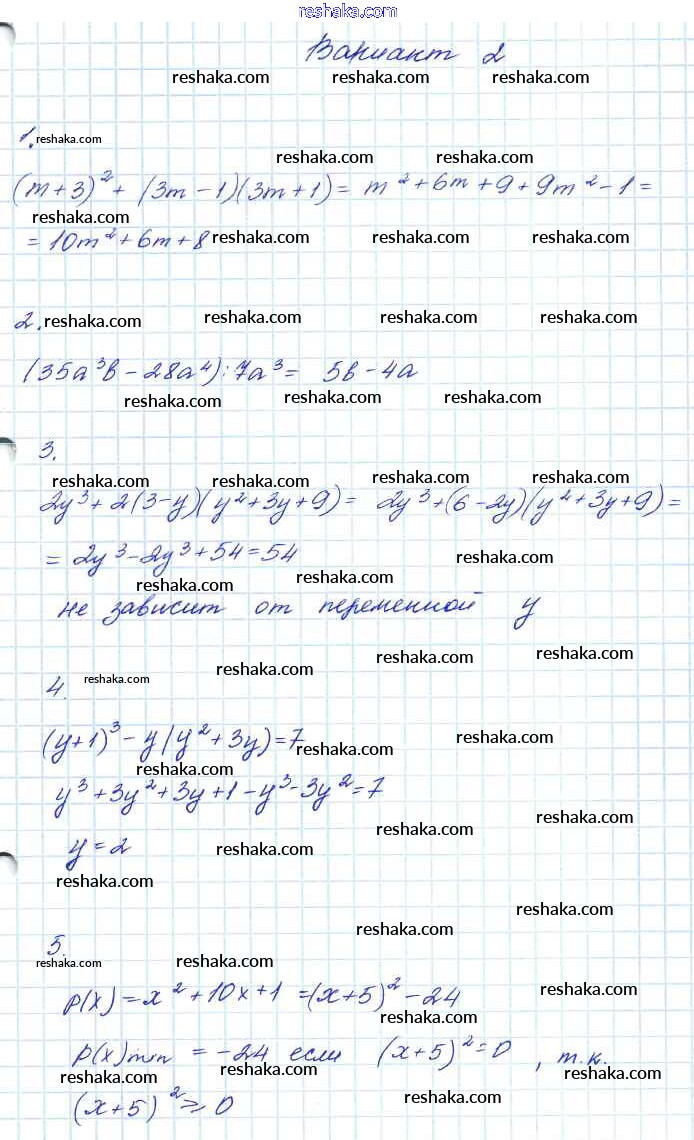 reshaka.com
Вариант 2
reshaka.com reshaka.com reshaka.com
1. reshaka.com
reshaka.com reshaka.com
(m+3)² + (3m-1)(3m+1) = m² + 6m + 9 + 9m² - 1 =
reshaka.com
= 10m² + 6m + 8 reshaka.com reshaka.com reshaka.com
2. reshaka.com reshaka.com reshaka.com reshaka.com
(35a³b - 28a⁴) : 7a³ = 5b - 4a
reshaka.com reshaka.com reshaka.com
3.
reshaka.com reshaka.com reshaka.com reshaka.com
2y³ + 2(3-y)(y²+3y+9) = 2y³ + (6-2y)(y²+3y+9) =
= 2y³ - 2y³ + 54 = 54 reshaka.com
reshaka.com reshaka.com
не зависит от переменной y
reshaka.com reshaka.com reshaka.com
4. reshaka.com
(y+1)³ - y(y²+3y) = 7 reshaka.com reshaka.com
reshaka.com
y³ + 3y² + 3y + 1 - y³ - 3y² = 7
reshaka.com reshaka.com
y = 2 reshaka.com
reshaka.com
reshaka.com
reshaka.com
5.
reshaka.com reshaka.com
P(x) = x² + 10x + 1 = (x+5)² - 24 reshaka.com
reshaka.com
P(x)min = -24 если (x+5)² = 0, т.к.
reshaka.com reshaka.com reshaka.com
(x+5)² ≥ 0 reshaka.com